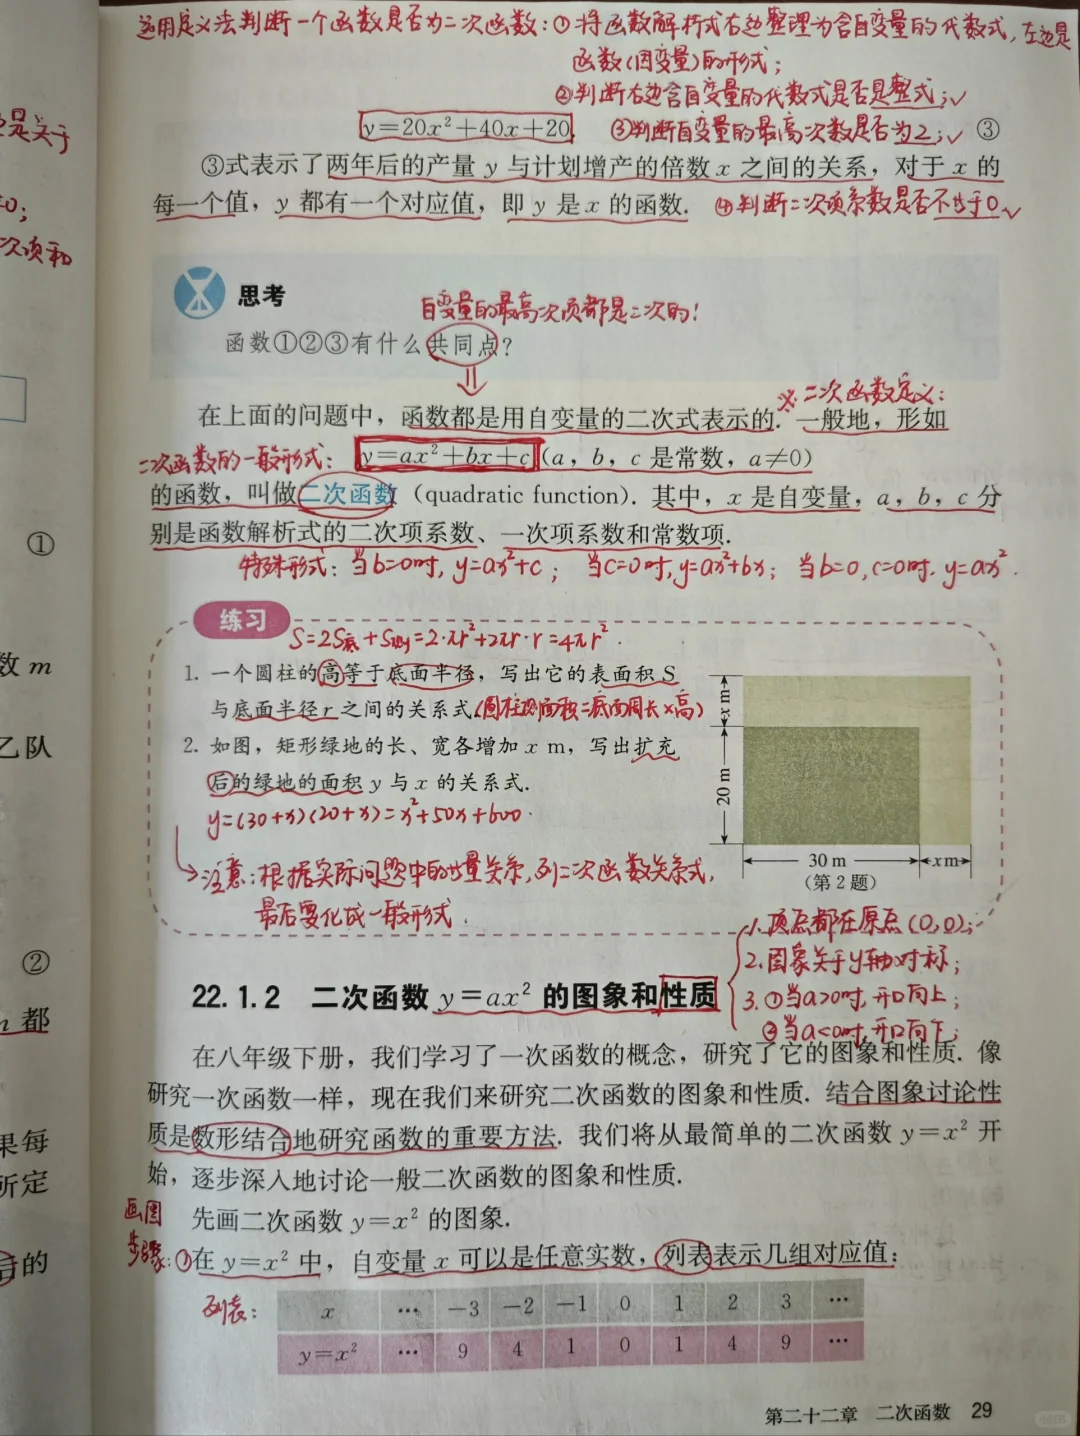 运用定义法判断一个函数是否为二次函数:①将函数解析式右边整理为含自变量的代数式,左边是
函数(因变量)的形式;
②判断右边含自变量的代数式是否是整式;✓
y=20x²+40x+20 ③判断自变量的最高次数是否为2;✓ ③
③式表示了两年后的产量 y 与计划增产的倍数 x 之间的关系,对于 x 的
每一个值,y 都有一个对应值,即 y 是 x 的函数. ④判断二次项系数是否不等于0✓
是关于
=0;
次项和
思考
自变量的最高次项都是二次的!
函数①②③有什么共同点?
※二次函数定义:
在上面的问题中,函数都是用自变量的二次式表示的. 一般地,形如
二次函数的一般形式: y=ax²+bx+c (a,b,c 是常数,a≠0)
的函数,叫做二次函数 (quadratic function). 其中,x 是自变量,a,b,c 分
别是函数解析式的二次项系数、一次项系数和常数项.
①
特殊形式:当b=0时,y=ax²+c; 当c=0时,y=ax²+bx; 当b=0,c=0时.y=ax².
练习
S=2S底+S侧=2·πr²+2πr·r=4πr².
1. 一个圆柱的高等于底面半径,写出它的表面积 S
数 m
与底面半径 r 之间的关系式.(圆柱侧面积=底面周长×高)
2. 如图,矩形绿地的长、宽各增加 x m,写出扩充
乙队
后的绿地的面积 y 与 x 的关系式.
y=(30+x)(20+x)=x²+50x+600.
x m
20 m
30 m
x m
(第 2 题)
注意:根据实际问题中的数量关系,列二次函数关系式,
最后要化成一般形式.
②
都
1.顶点都在原点(0,0);
2.图象关于y轴对称;
3.①当a>0时,开口向上;
②当a<0时,开口向下;
22.1.2 二次函数 y=ax² 的图象和性质
在八年级下册,我们学习了一次函数的概念,研究了它的图象和性质. 像
研究一次函数一样,现在我们来研究二次函数的图象和性质. 结合图象讨论性
质是数形结合地研究函数的重要方法. 我们将从最简单的二次函数 y=x² 开
始,逐步深入地讨论一般二次函数的图象和性质.
果每
所定
的
先画二次函数 y=x² 的图象.
画图
步骤:①在 y=x² 中,自变量 x 可以是任意实数,列表表示几组对应值:
列表:
x … −3 −2 −1 0 1 2 3 …
y=x² … 9 4 1 0 1 4 9 …
第二十二章 二次函数 29